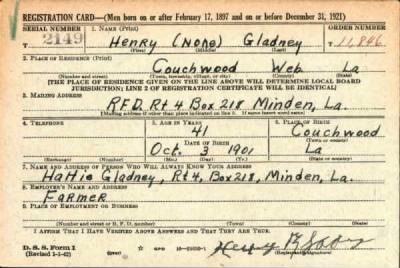 REGISTRATION CARD—(Men born on or after February 17, 1897 and on or before December 31, 1921)
SERIAL NUMBER 1. NAME (Print) ORDER NUMBER
2149 Henry (None) Gladney 11,846
(First) (Middle) (Last)
2. PLACE OF RESIDENCE (Print)
Couchwood Web La
(Number and street) (Town, township, village, or city) (County) (State)
[THE PLACE OF RESIDENCE GIVEN ON THE LINE ABOVE WILL DETERMINE LOCAL BOARD
JURISDICTION; LINE 2 OF REGISTRATION CERTIFICATE WILL BE IDENTICAL]
3. MAILING ADDRESS
RFD. Rt 4 Box 218, Minden, La.
[Mailing address if other than place indicated on line 2. If same insert word same]
4. TELEPHONE 5. AGE IN YEARS 6. PLACE OF BIRTH
41 Couchwood
DATE OF BIRTH (Town or county)
Oct. 3 1901 La
(Exchange) (Number) (Mo.) (Day) (Yr.) (State or country)
7. NAME AND ADDRESS OF PERSON WHO WILL ALWAYS KNOW YOUR ADDRESS
Hattie Gladney, Rt 4, Box 218, Minden, La.
8. EMPLOYER'S NAME AND ADDRESS
Farmer
9. PLACE OF EMPLOYMENT OR BUSINESS
(Number and street or R. F. D. number) (Town) (County) (State)
I AFFIRM THAT I HAVE VERIFIED ABOVE ANSWERS AND THAT THEY ARE TRUE.
D. S. S. Form 1
(Revised 1-1-42) GPO (Registrant's signature)